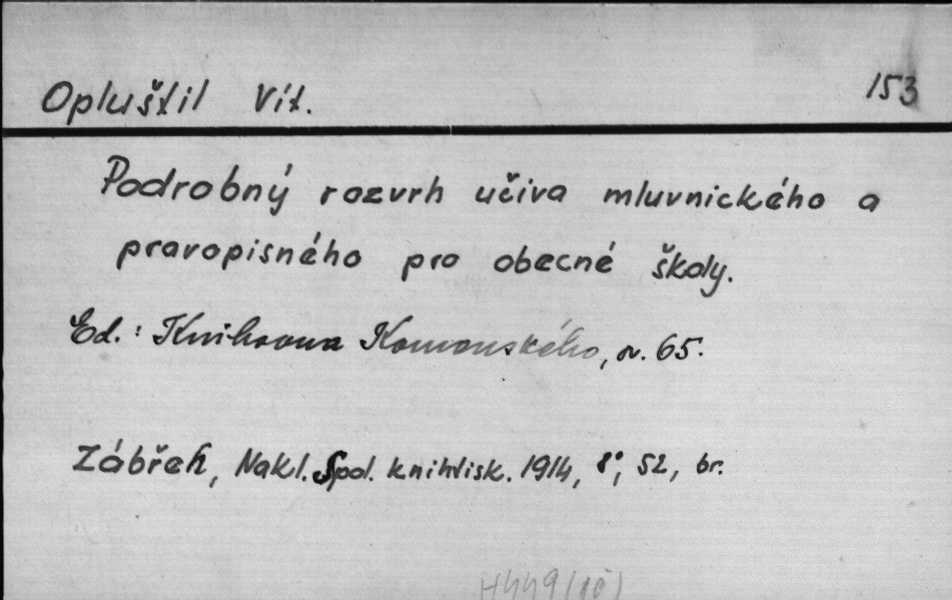 Opluštil Vít. 153
Podrobný rozvrh učiva mluvnického a
pravopisného pro obecné školy.
Ed.: Knihovna Komenského, sv. 65.
Zábřeh, Nakl. Spol. knihtisk. 1914, 8°, 52, br.